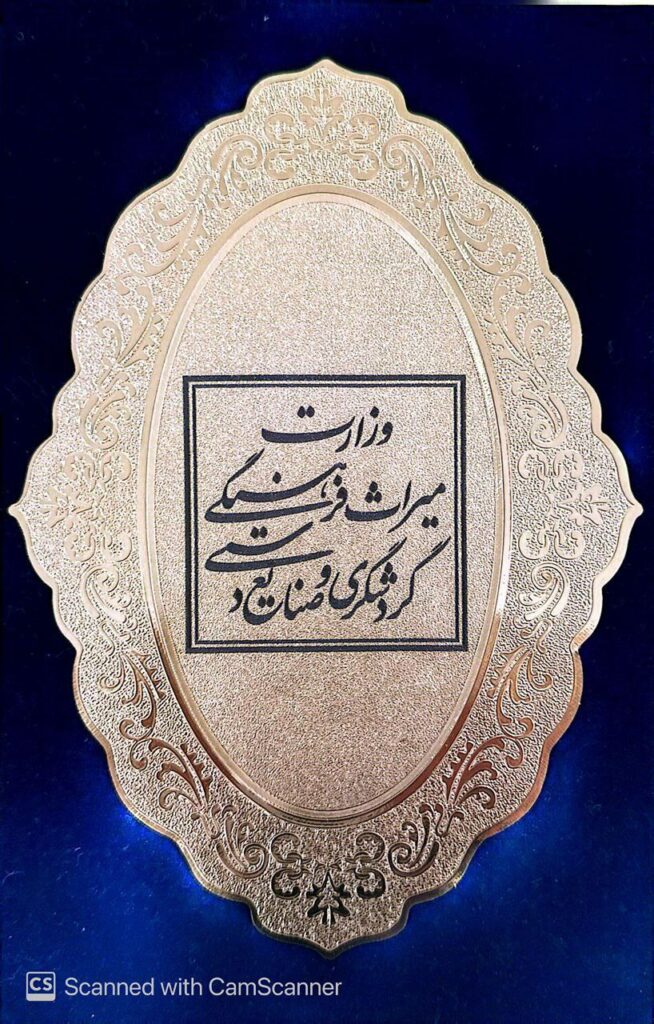 وزارت
میراث فرهنگی
گردشگری و صنایع دستی
CS Scanned with CamScanner